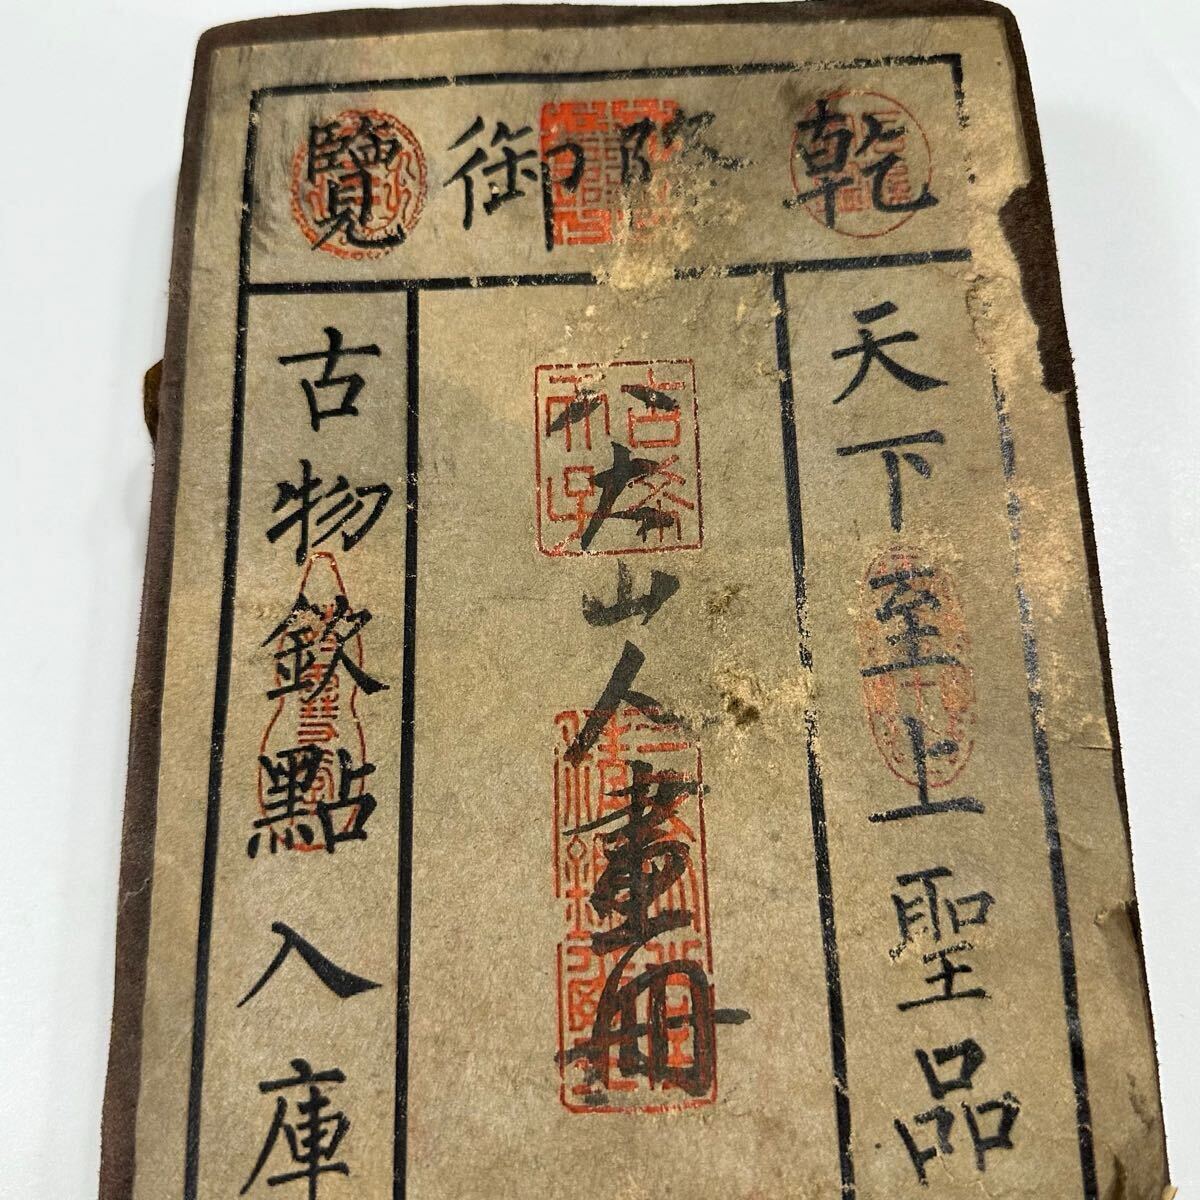 乾隆御覽
天下至上聖品
八大山人畫冊
古物欽點入庫